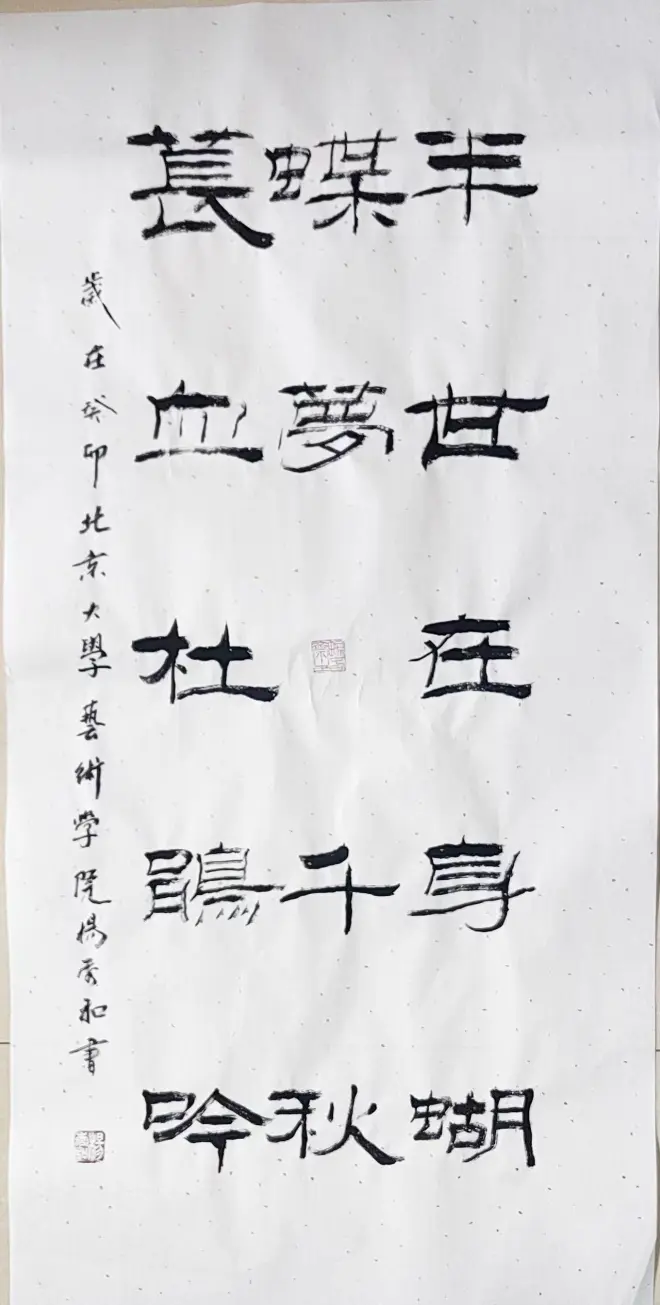 半世在身蝴
蝶夢千秋
萇血杜鵑吟
歲在癸卯北京大學藝術学院楊和書